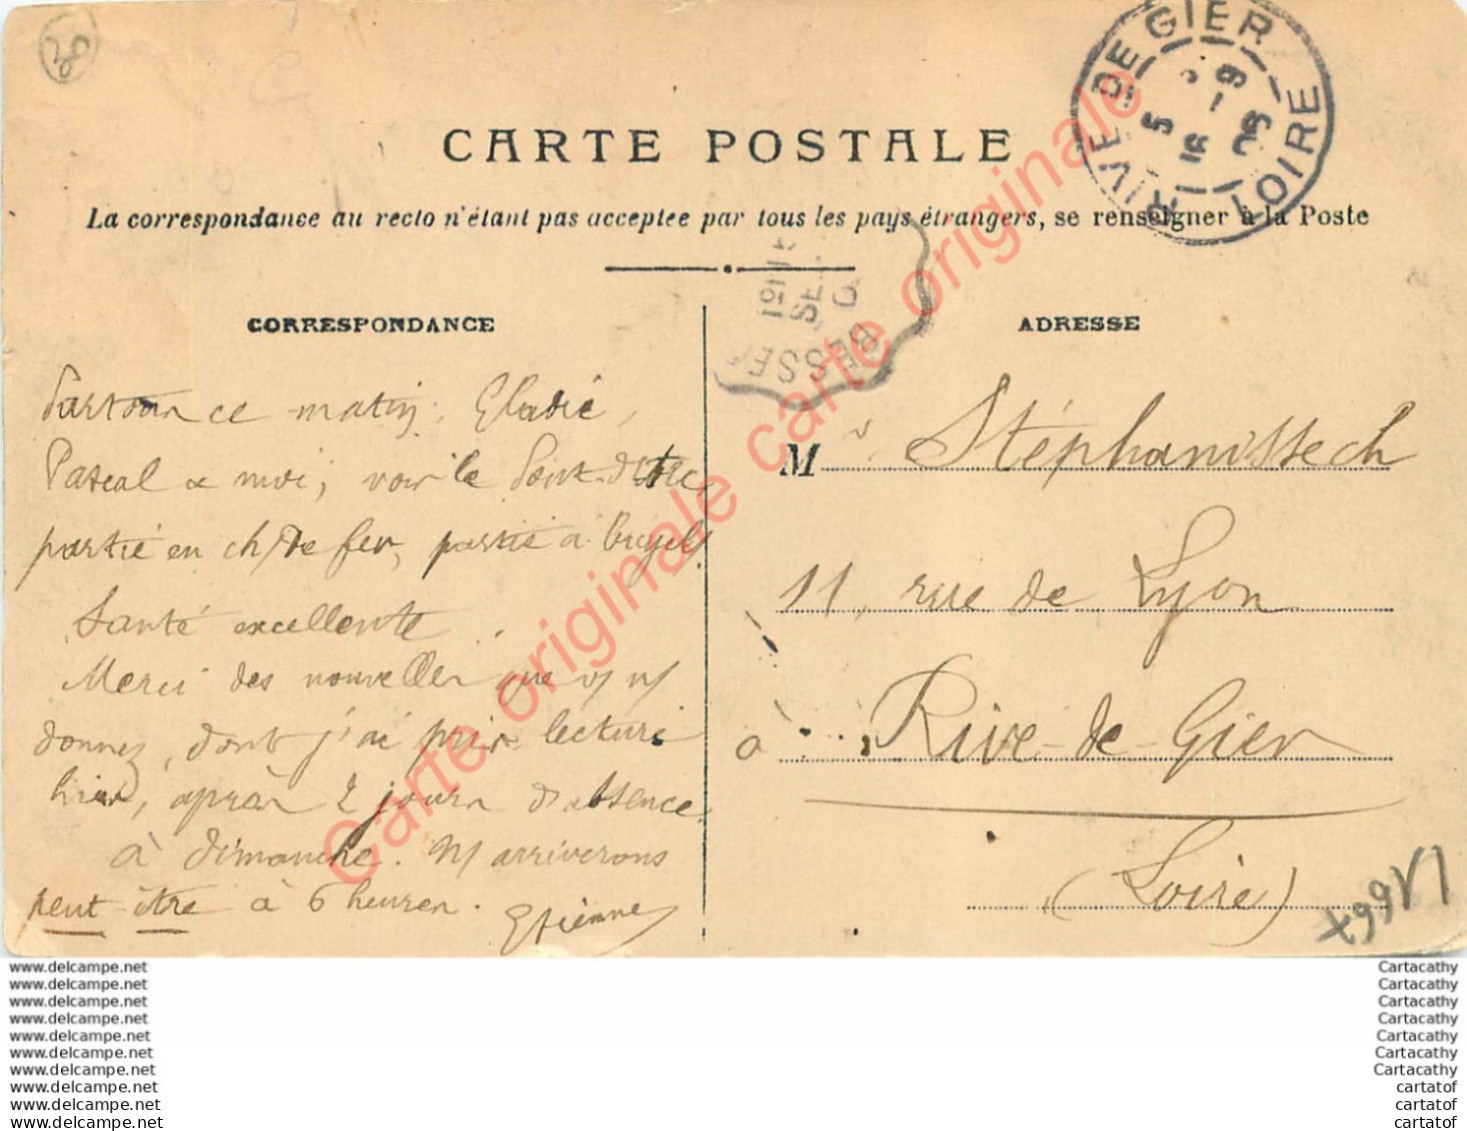 30
RIVE DE GIER
LOIRE
5
16 -9
06
CARTE POSTALE
La correspondance au recto n'étant pas acceptée par tous les pays étrangers, se renseigner à la Poste
CORRESPONDANCE
ADRESSE
BESSE
Partons ce matin, Eladie,
Pascal & moi, voir le
partie en ch/ de fer, partie à
Santé excellente.
Merci des nouvelles que v/ n/
donnez, dont j'ai pris lecture
hier, après 2 jours d'absence
à dimanche. N/ arriverons
peut être à 6 heures.
Etienne
M r Stéphanissech
11, rue de Lyon
à Rive-de-Gier
(Loire)
Carte originale carte originale carte originale
www.delcampe.net
www.delcampe.net
www.delcampe.net
www.delcampe.net
www.delcampe.net
www.delcampe.net
www.delcampe.net
www.delcampe.net
www.delcampe.net
www.delcampe.net
Cartacathy
Cartacathy
Cartacathy
Cartacathy
Cartacathy
Cartacathy
Cartacathy
cartatof
cartatof
cartatof